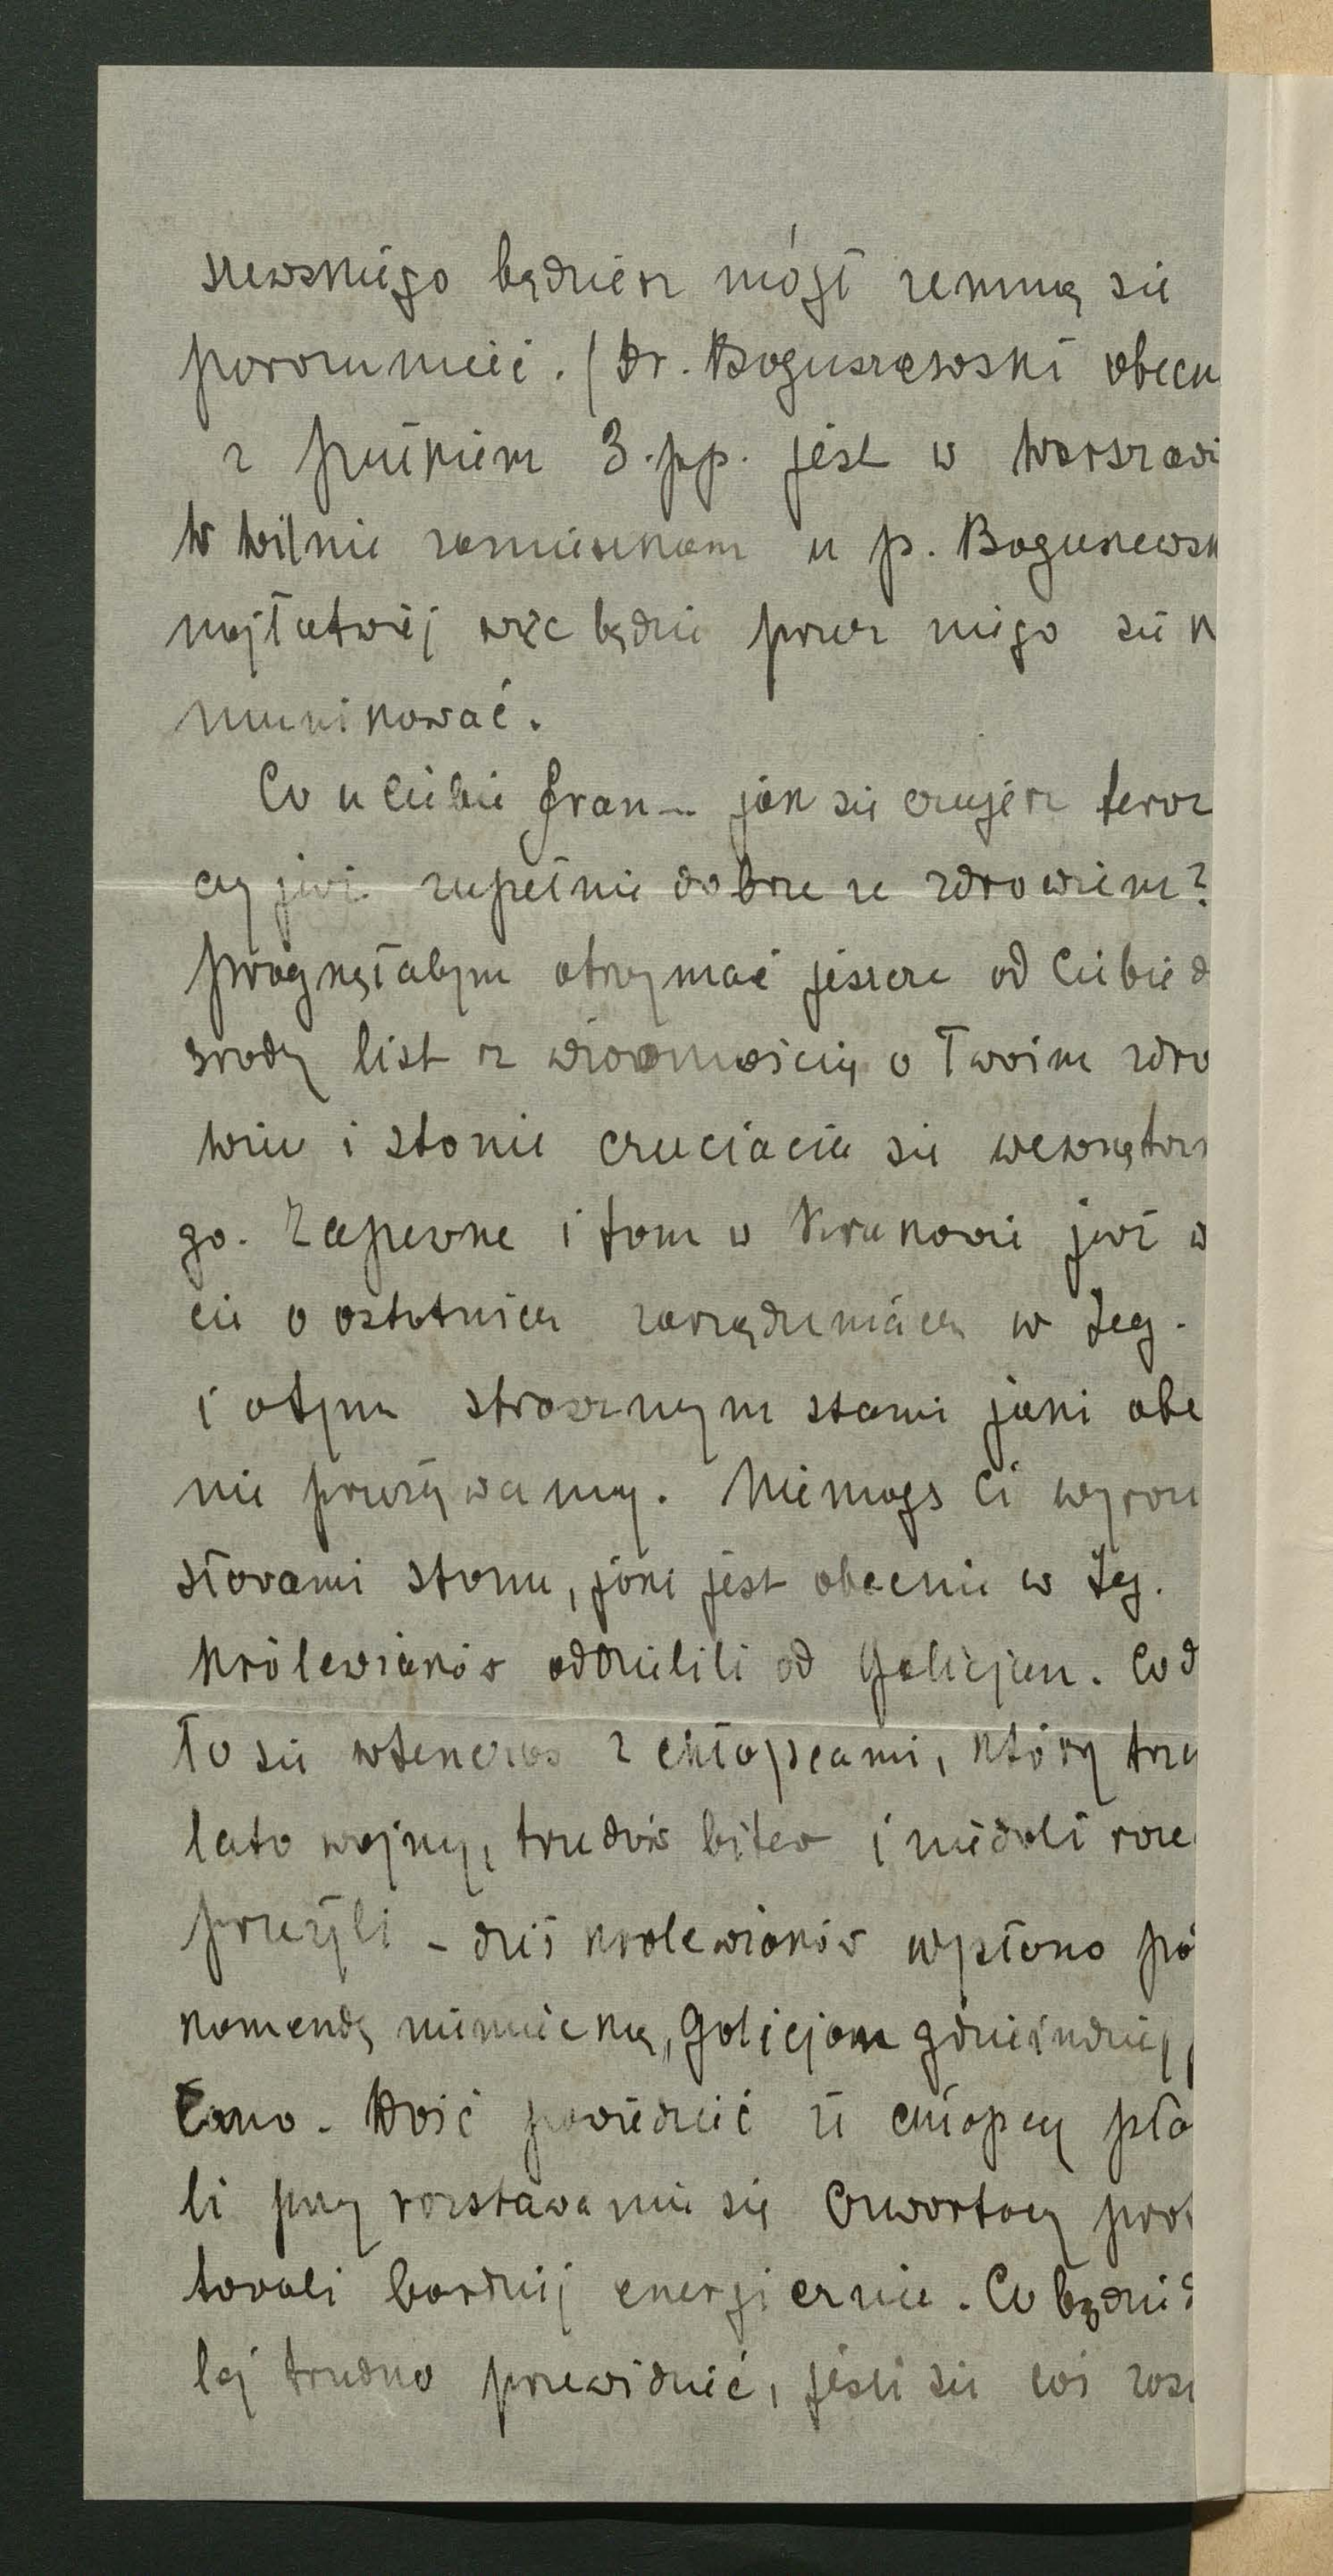 szewskiego będziesz mógł zemną się
porozumieć. (Dr. Boguszewski obecn
z pułkiem 3.pp. jest w Warszawi
W Wilnie zamieszkam u p. Boguszewsk
najłatwiej więc będzie przez niego się k
munikować.
Co u Ciebie Fran— jak się czujesz teraz
czy już zupełnie dobrze ze zdrowiem?
Pragnęłabym otrzymać jeszcze od Ciebie d
środy list z wiadomością o Twoim zdro
wiu i stanie czuciacia się wewnętrz
go. Zapewne i tam w Krakowie już w
cie o ostatnich zarządzeniach w Leg.
i o tym strasznym stanie jaki obe
nie przeżywamy. Nie mogę Ci wyraz
słowami stanu, jaki jest obecnie w Leg.
Królewiaków oddzielili od Galicjan. Co d
ło się wtenczas z chłopcami, którzy trzy
lata wojny, trudów bitew i niedoli raze
przeżyli – dziś królewiaków wysłano po
komendę niemiecką, Galicjan gdzieindziej,
łano. Dość powiedzieć że chłopcy pła
li przy rozstawaniu się Czwartacy prot
towali bardziej energicznie. Co będzie d
lej trudno przewidzieć, jeśli się coś